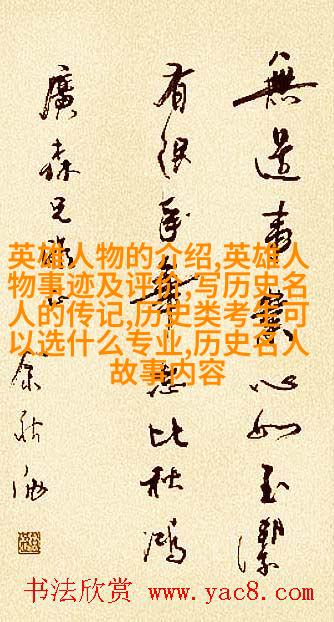 無邊事業心如玉潔
有限年華比秋鴻
廣森兄
余秋
英雄人物的介绍,英雄人
物事迹及评价,写历史名
人的传记,历史类考生可
以选什么专业,历史名人
故事内容
书法欣赏 www.yac8.com